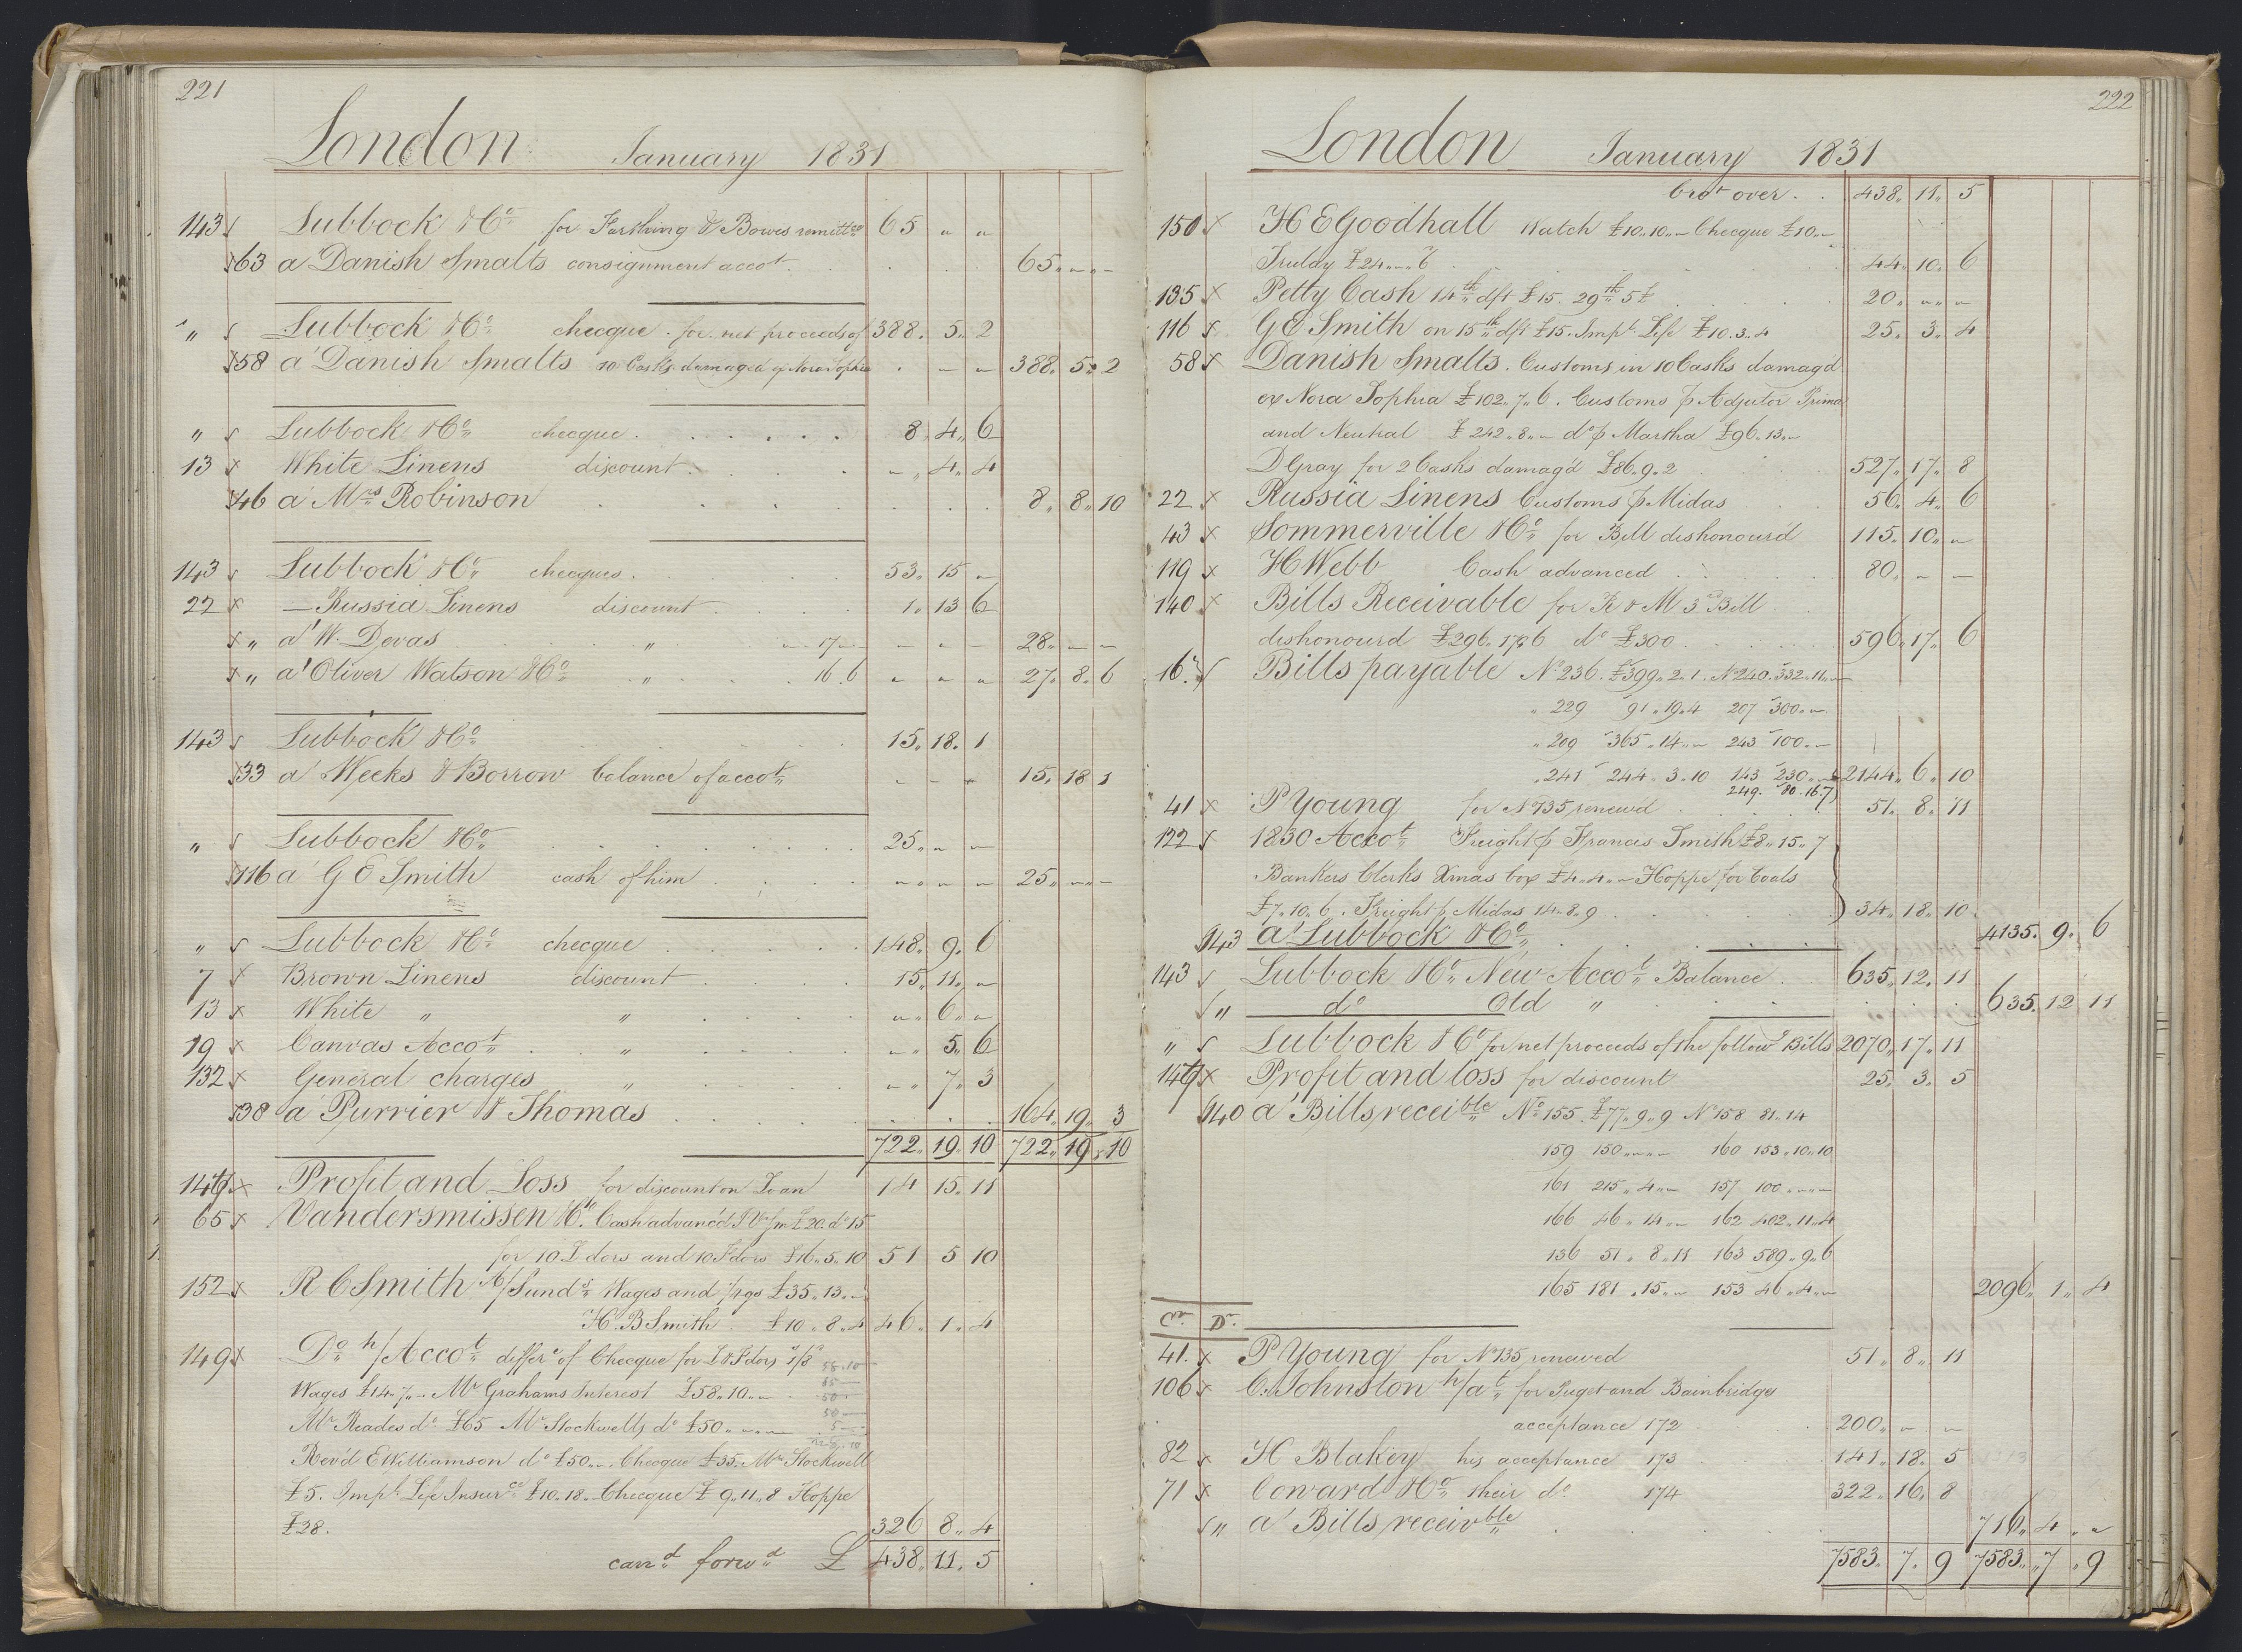 221
London January 1831
143 Lubbock & Co for Farthing & Bowes remittce 65 " "
63 a Danish Smalts consignment accot. 65 " "
" Lubbock & Co checque for net proceeds of 388. 5. 2
58 a Danish Smalts 10 Casks damaged ex Nora Sophia 388. 5. 2
" Lubbock & Co checque 8. 4. 6
13 x White Linens discount " 4. 4
46 a Mrs Robinson 8. 8. 10
143 Lubbock & Co checques 53. 15 "
22 x Russia Linens discount 1. 13 6
x " a W. Devas " 17 28 " "
x " a Oliver Watson & Co " 16. 6 27. 8. 6
143 Lubbock & Co 15. 18. 1
33 a Weeks & Borrow balance of accot 15. 18 1
" Lubbock & Co 25 " "
116 a G E Smith cash of him 25 " "
" Lubbock & Co checque 148. 9. 6
7 x Brown Linens discount 15. 11. "
13 x White " " " 6. "
19 x Canvas Accot " " 5. 6
132 x General charges " " 7. 3
38 a Purrier & Thomas 164. 19. 3
722. 19. 10 722. 19. 10
149 x Profit and Loss for discount on Loan 14 15. 11
65 x Vandersmissen & Co. Cash advanc'd £20. do 15
for 10 L dors and 10 F dors £16. 5. 10 51 5 10
152 x R C Smith Sunds Wages and £35. 13. "
H. B Smith £10. 8. 4 46. 1. 4
149 x Do h/Accot differe of Checque for L & F dors 1/8
Wages £14. 7. " Mr Grahams Interest £58. 10. "
Mr Reades do £65 Mr Stockwells do £50 " "
Revd E Williamson do £50. " Checque £35. Mr Stockwell
£5. Impl Life Insurce £10. 18. Checque £9. 11. 8 Hoppe
£28. 326 8. 4
carrd forwd £ 438. 11. 5
222
London January 1831
brot over 438. 11. 5
150 x H E Goodhall Watch £10. 10. " Checque £10. "
Truelay £24. " 6 44. 10. 6
135 x Petty Cash 14th dft £15. 29th 5£ 20 " "
116 x G E Smith on 15th dft £15. Impl Life £10. 3. 4 25. 3. 4
58 x Danish Smalts. Customs in 10 Casks damag'd
ex Nora Sophia £102. 7. 6. Customs p Adjutor Prima
and Neutral £242. 8. " do p Martha £96. 13. "
D Gray for 2 Casks damag'd £86. 9. 2 527. 17. 8
22 x Russia Linens Customs p Midas 56. 4. 6
43 x Sommerville & Co for Bill dishonour'd 115. 10. "
119 x H Webb Cash advanced 80. " "
140 x Bills Receivable for R & M 3d Bill
dishonourd £296. 17. 6 do £300 596. 17. 6
16 Bills payable No 236. £399. 2. 1. No 240. 332. 11. "
" 229 91. 19. 4 207 300. "
" 209 365. 14. " 243 100. "
" 241 244. 3. 10 143 230. " 2144. 6. 10
249. 80. 16. 7
41 x P Young for No 135 renewd 51. 8. 11
122 x 1830 Accot Freight p Francis Smith £8. 15. 7
Bankers Clerks Xmas box £4. 4. " Hoppe for Coals
£7. 10. 6. Freight p Midas 14. 8. 9 34. 18. 10
143 a Lubbock & Co 4135. 9. 6
143 Lubbock & Co New Accot Balance 635. 12. 11
" do Old " 635. 12 11
" Lubbock & Co for net proceeds of the followg Bills 2070. 17. 11
149 x Profit and loss for discount 25. 3. 5
140 a Bills receible No 155. £77. 9. 9 No 158 81. 14
159 150 " " 160 153. 10. 10
161 215. 4. " 157 100 " "
166 46. 14. " 162 402. 11. 4
136 51. 8. 11 163 589. 9. 6
165 181. 15. " 153 46. 4. " 2096. 1. 4
Cr. Dr.
41. x P Young for No 135 renewed 51. 8. 11
106 x C. Johnston h/at for Puget and Bainbridges
acceptance 172 200. " "
82 x H Blakey his acceptance 173 141. 18. 5
71 x Coward & Co their do 174 322. 16. 8
" a Bills receivble 716. 4. "
7583. 7. 9 7583. 7. 9